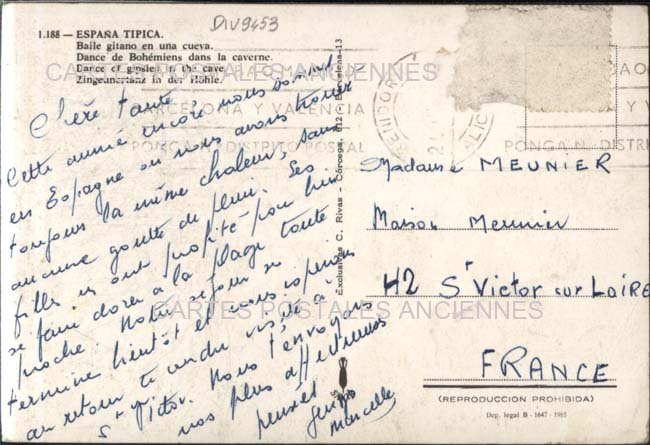 DIV9453
1.188 — ESPAÑA TIPICA.
Baile gitano en una cueva.
Danse de Bohémiens dans la caverne.
Dance of gipsies in the cave.
Zingeunertanz in der Höhle.
CARTES POSTALES ANCIENNES
BARCELONA Y VALENCIA
PONGA N. DISTRITO POSTAL
BENIDORM
ALIC
Y VALEN
PONGA N. DISTRI
Chère tante
Cette année encore nous sommes
en Espagne où nous avons trouvé
toujours la même chaleur, sans
aucune goutte de pluie. Les
filles en ont profité pour bien
se faire dorer à la plage toute
proche. Notre séjour se
termine bientôt et nous espérons
au retour te rendre visite à
St Victor. Nous t'envoyons
nos plus affectueuses
pensées
Marcelle
Exclusivas C. Rivas - Córcega, 612 - Barcelona-13
Madame MEUNIER
Maison Meunier
42 St Victor sur Loire
FRANCE
CARTES POSTALES ANCIENNES
(REPRODUCCION PROHIBIDA)
Dep. legal B - 1647 - 1965